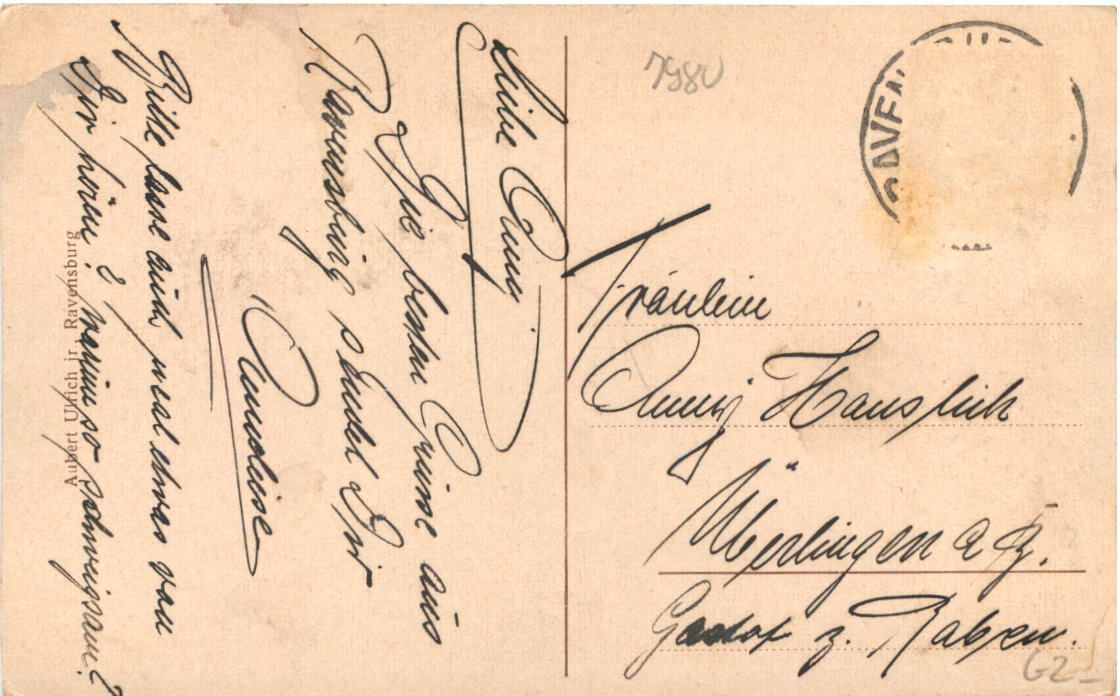 Liebe Anny
Die besten Grüsse aus
Ravensburg sendet Dir
Anneliese
Bitte lasse auch mal etwas von
Dir hören! warum so schweigsam?
Aubert Ulrich jr. Ravensburg
7980
RAVEN
Fräulein
Anny Hauslick
Überlingen a B.
Gasthof z. Raben.